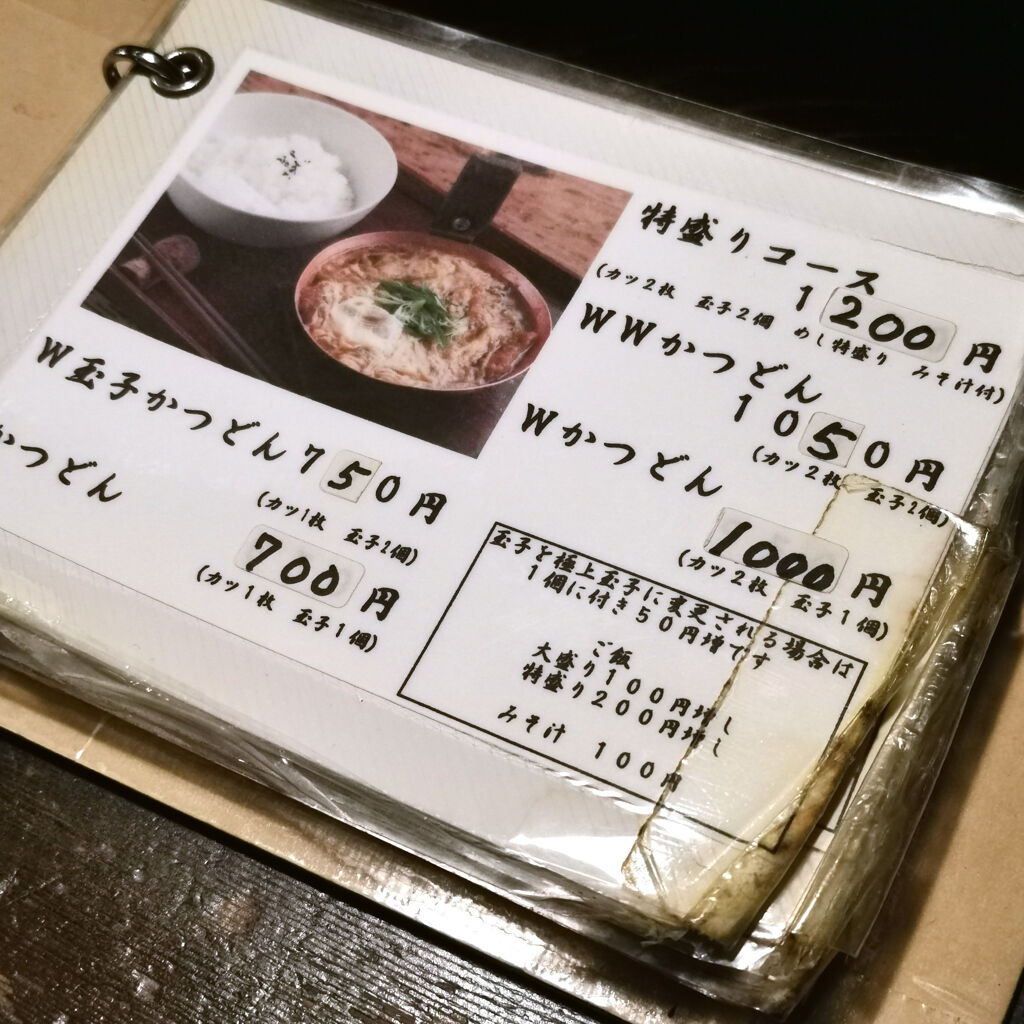 特盛りコース
1200円
(カツ2枚 玉子2個 めし特盛り みそ汁付)
WWかつどん
1050円
(カツ2枚 玉子2個)
Wかつどん
1000円
(カツ2枚 玉子1個)
W玉子かつどん750円
(カツ1枚 玉子2個)
かつどん
700円
(カツ1枚 玉子1個)
玉子を極上玉子に変更される場合は
1個に付き50円増です
ご飯
大盛り100円増し
特盛り200円増し
みそ汁 100円